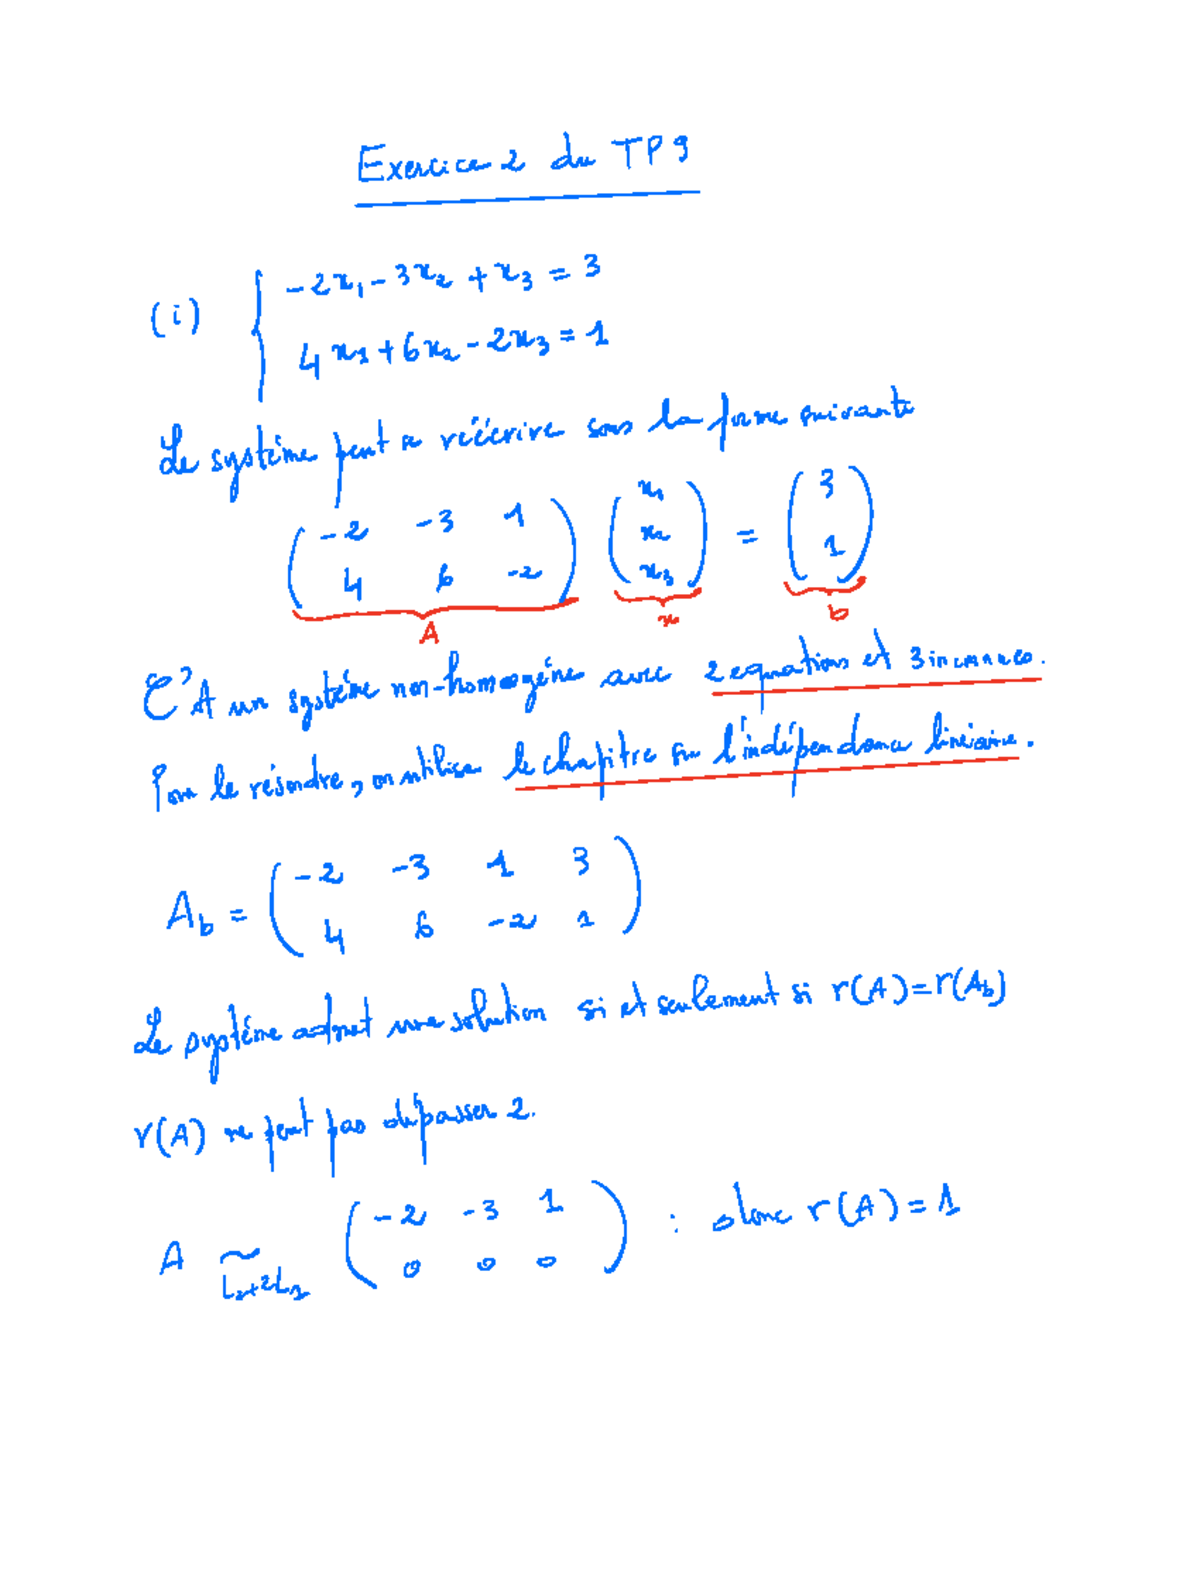 Exercice 2 du TP 9
(i) { -2x₁ - 3x₂ + x₃ = 3
4x₁ + 6x₂ - 2x₃ = 1
Le système peut se réécrire sous la forme suivante
( -2 -3 1 ) ( x₁ ) = ( 3 )
( 4 6 -2 ) ( x₂ ) ( 1 )
( x₃ )
A x b
C'est un système non-homogène avec 2 equations et 3 inconnues.
Pour le résoudre, on utilise le chapitre sur l'indépendance linéaire.
A_b = ( -2 -3 1 3 )
( 4 6 -2 1 )
Le système admet une solution si et seulement si r(A)=r(A_b)
r(A) ne peut pas dépasser 2.
A ~ ( -2 -3 1 ) : donc r(A) = 1
L₂+2L₁ ( 0 0 0 )